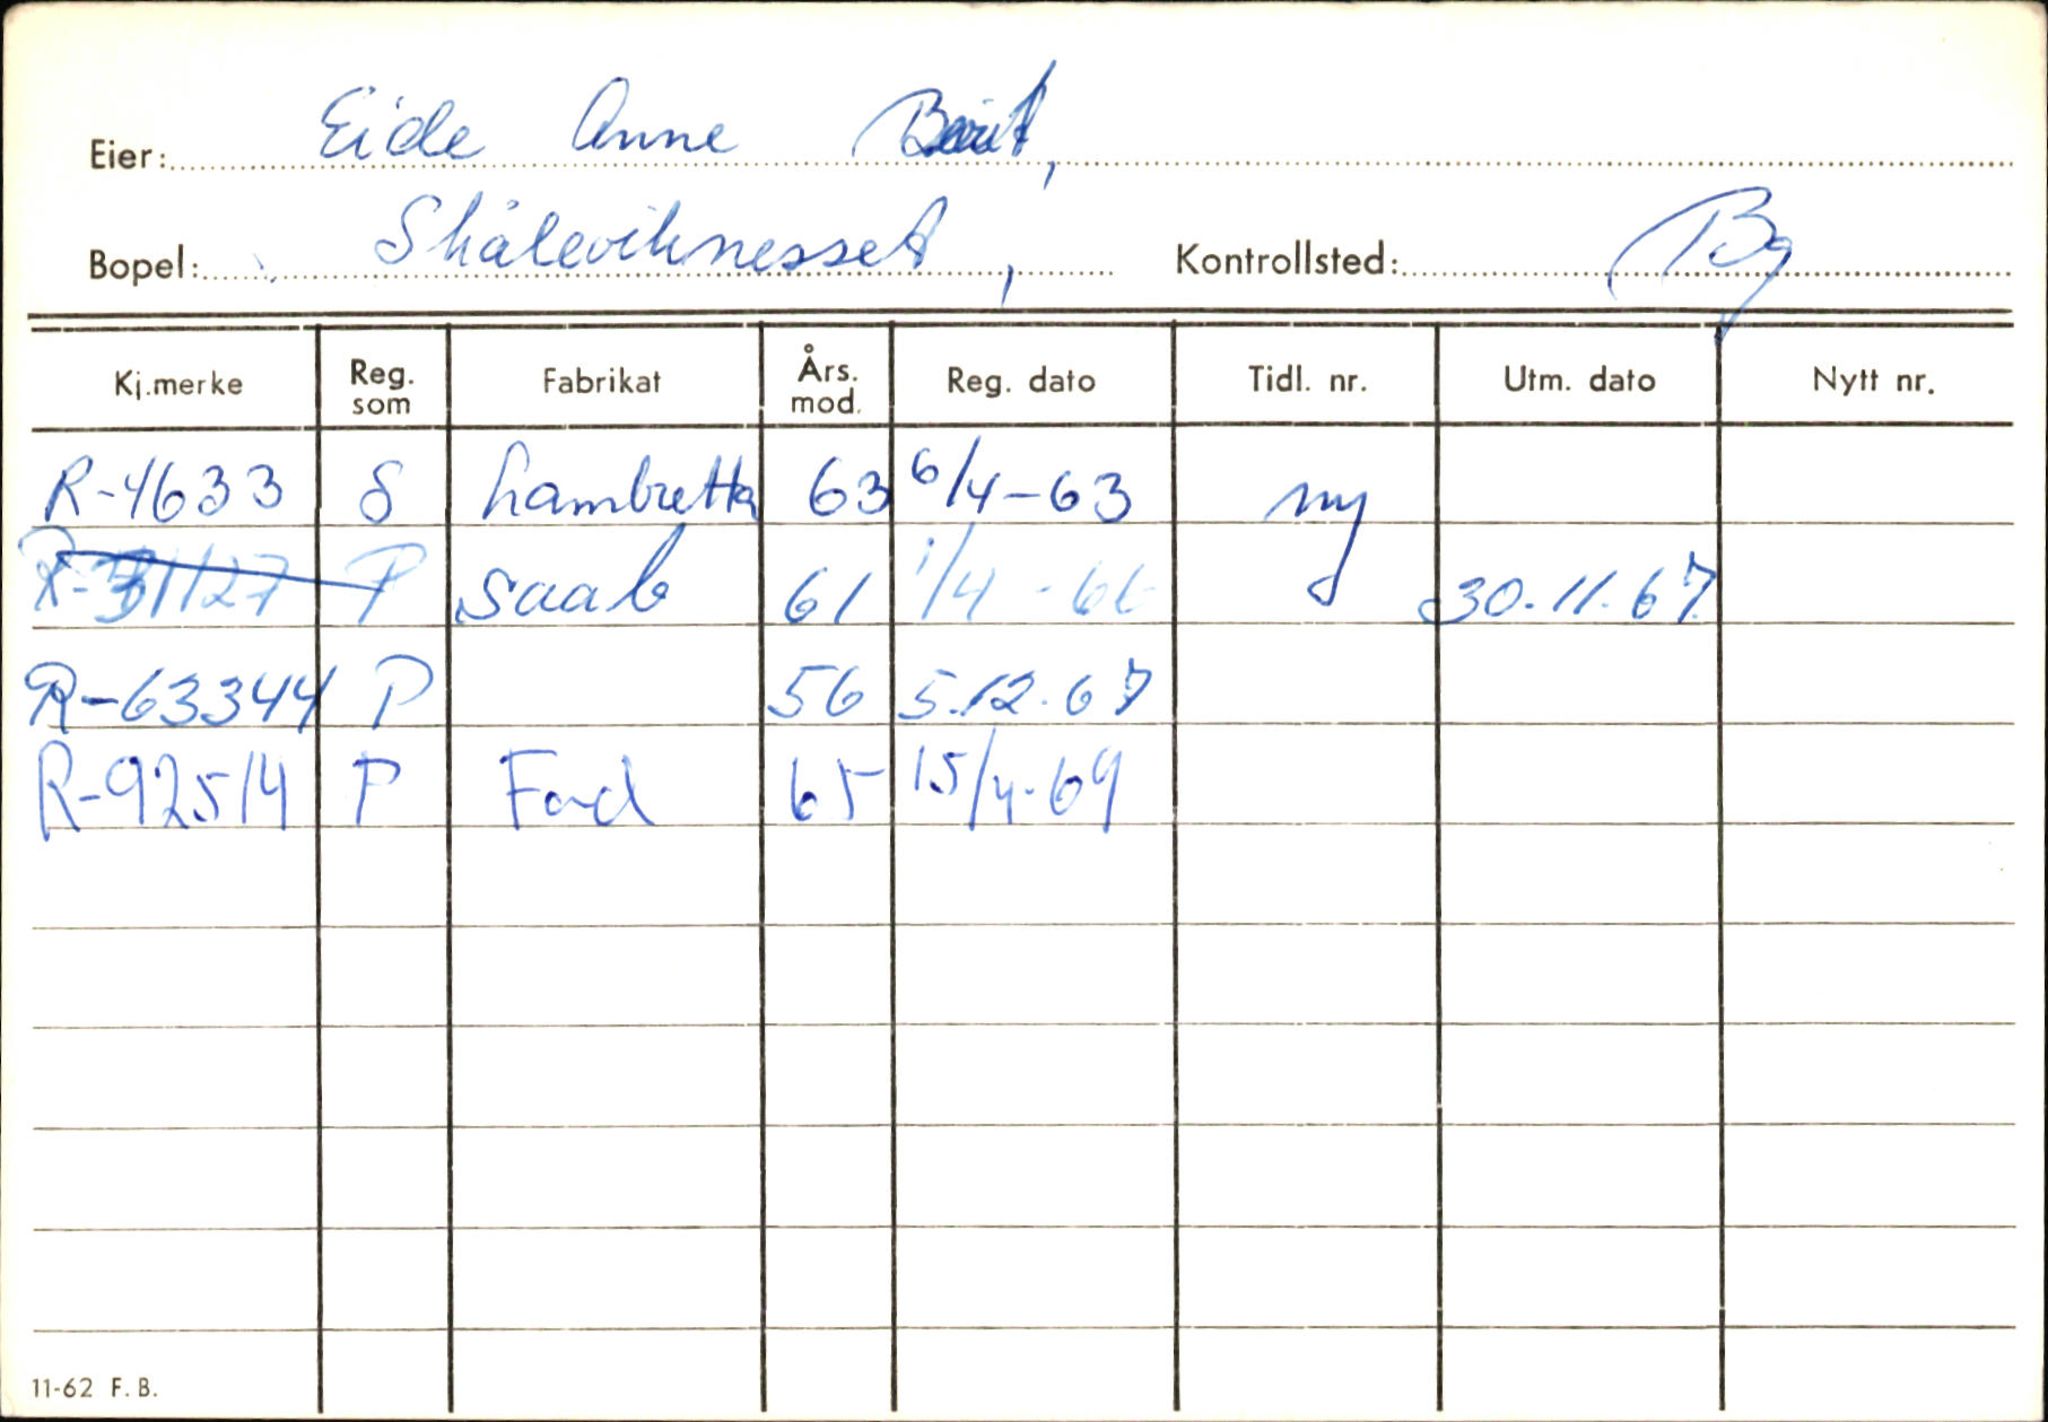 Eier: Eide Anne Berit,
Bopel: Skåleviknesset, Kontrollsted: Bg
Kj.merke Reg. som Fabrikat Års. mod. Reg. dato Tidl. nr. Utm. dato Nytt nr.
R-4633 S Lambretta 63 6/4-63 ny
R-31127 P Saab 61 1/4-66 30.11.67
R-63344 P 56 5.12.67
R-92514 P Ford 65 15/4-69
11-62 F.B.